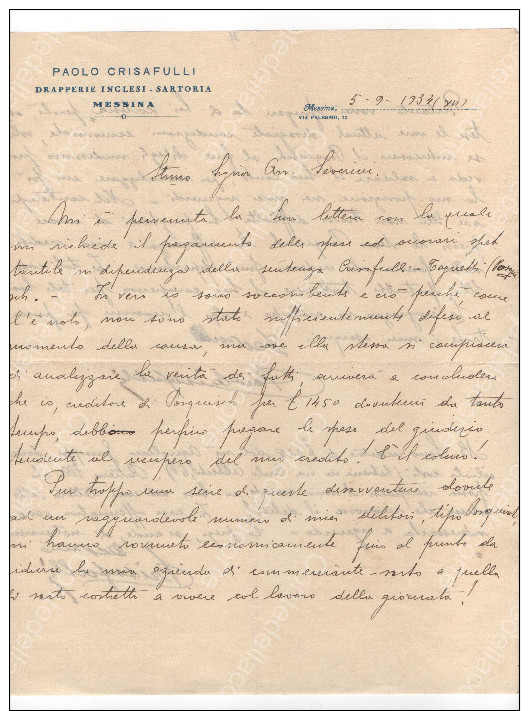 PAOLO CRISAFULLI
DRAPPERIE INGLESI - SARTORIA
MESSINA
Messina, 5-9-1934 (XII)
VIA PALERMO, 12
Stimo Signor Avv. Severini,
Mi è pervenuta la Sua lettera con la quale
mi richiede il pagamento delle spese ed onorari spet
tantile in dipendenza della sentenza Crisafulli -
- In vero io sono soccombente e ciò perchè, come
l'è noto non sono stato sufficientemente difeso al
momento della causa, ma ove ella stessa si compiacerà
di analizzare la verità dei fatti, arriverà a concludere
che io, creditore di Pasquisch per £ 1450 dovutemi da tanto
tempo, debbo perfino pagare le spese del giudizio
tendente al recupero del mio credito! È il colmo!
Pur troppo una serie di queste disavventure dovute
ad un ragguardevole numero di miei debitori, tipo
mi hanno rovinato economicamente fino al punto da
ridurre la mia azienda di commerciante-sarto a quella
di sarto costretto a vivere col lavoro della giornata!